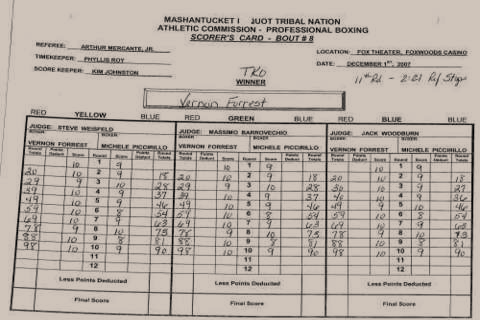 MASHANTUCKET I JUOT TRIBAL NATION
ATHLETIC COMMISSION - PROFESSIONAL BOXING
SCORER'S CARD - BOUT # 8
REFEREE: ARTHUR MERCANTE, JR.
LOCATION: FOX THEATER, FOXWOODS CASINO
TIMEKEEPER: PHYLLIS ROY
DATE: DECEMBER 1ST, 2007
SCORE KEEPER: KIM JOHNSTON
TKO
11th Rd - 2:21 Ref Stops
WINNER
Vernon Forrest
RED YELLOW BLUE RED GREEN BLUE RED BLUE BLUE
JUDGE: STEVE WEISFELD JUDGE: MASSIMO BARROVECHIO JUDGE: JACK WOODBURN
BOXER BOXER BOXER BOXER BOXER BOXER
VERNON FORREST MICHELE PICCIRILLO VERNON FORREST MICHELE PICCIRILLO VERNON FORREST MICHELE PICCIRILLO
Round Totals Points Deduct Score Round Score Points Deduct Round Totals Round Totals Points Deduct Score Round Score Points Deduct Round Totals Round Totals Points Deduct Score Round Score Points Deduct Round Totals
10 1 9 10 1 9 10 1 9
20 10 2 9 18 20 10 2 9 18 20 10 2 9 18
29 9 3 10 28 29 9 3 10 28 30 10 3 9 27
10 4 9 37 10 4 9 10 4 9 36
49 10 5 9 46 49 10 5 9 46 10 46
59 10 6 8 54 59 10 6 8 54 10 6 8 54
69 10 7 9 63 69 10 7 9 63 10 7 9
78 9 8 10 78 9 8 10 8
88 10 9 8 81 88 10 9 8 81 88 10 9 8 81
98 10 10 9 90 98 10 10 9 90 98 10 10 9 90
11 11 11
12 12 12
Less Points Deducted Less Points Deducted Less Points Deducted
Final Score Final Score Final Score